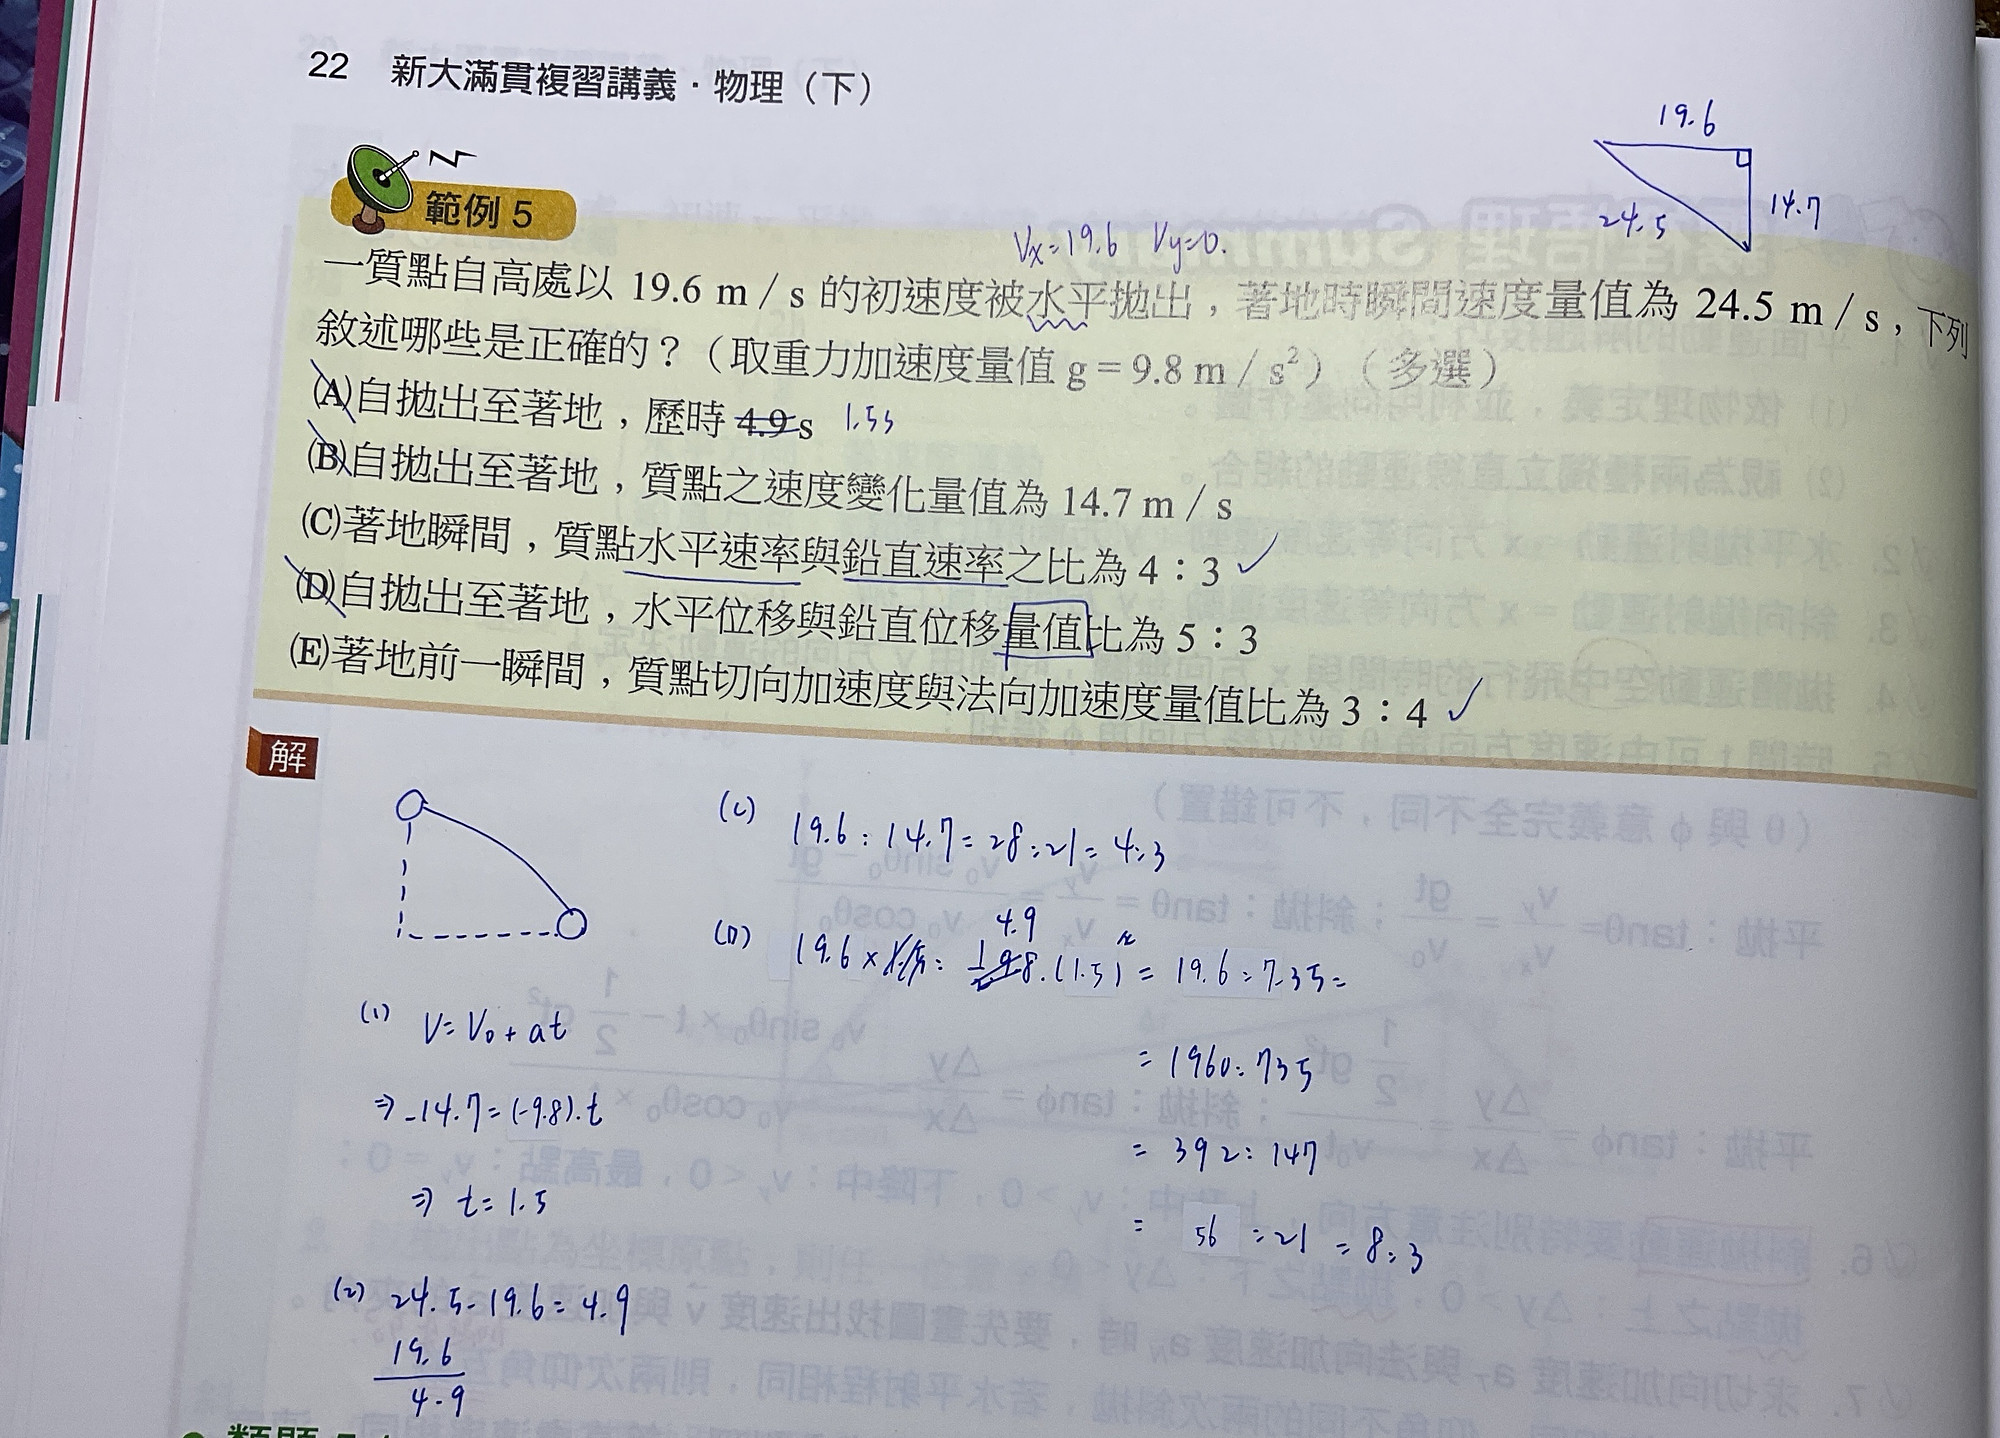 22 新大滿貫複習講義・物理（下）
19.6
14.7
24.5
範例 5
Vx=19.6 Vy=0.
一質點自高處以 19.6 m / s 的初速度被水平拋出，著地時瞬間速度量值為 24.5 m / s，下列
敘述哪些是正確的？（取重力加速度量值 g = 9.8 m / s²）（多選）
(A)自拋出至著地，歷時 4.9 s 1.5s
(B)自拋出至著地，質點之速度變化量值為 14.7 m / s
(C)著地瞬間，質點水平速率與鉛直速率之比為 4：3 ✓
(D)自拋出至著地，水平位移與鉛直位移量值比為 5：3
(E)著地前一瞬間，質點切向加速度與法向加速度量值比為 3：4 ✓
解
(C) 19.6 : 14.7 = 28 : 21 = 4 : 3
4.9
(D) 19.6 × 1.5 : ½ 9.8 . (1.5)² = 19.6 : 7.35 =
= 1960 : 735
= 392 : 147
= 56 : 21 = 8 : 3
(1) V = V₀ + at
⇒ -14.7 = (-9.8) . t
⇒ t = 1.5
(2) 24.5 - 19.6 = 4.9
19.6
4.9